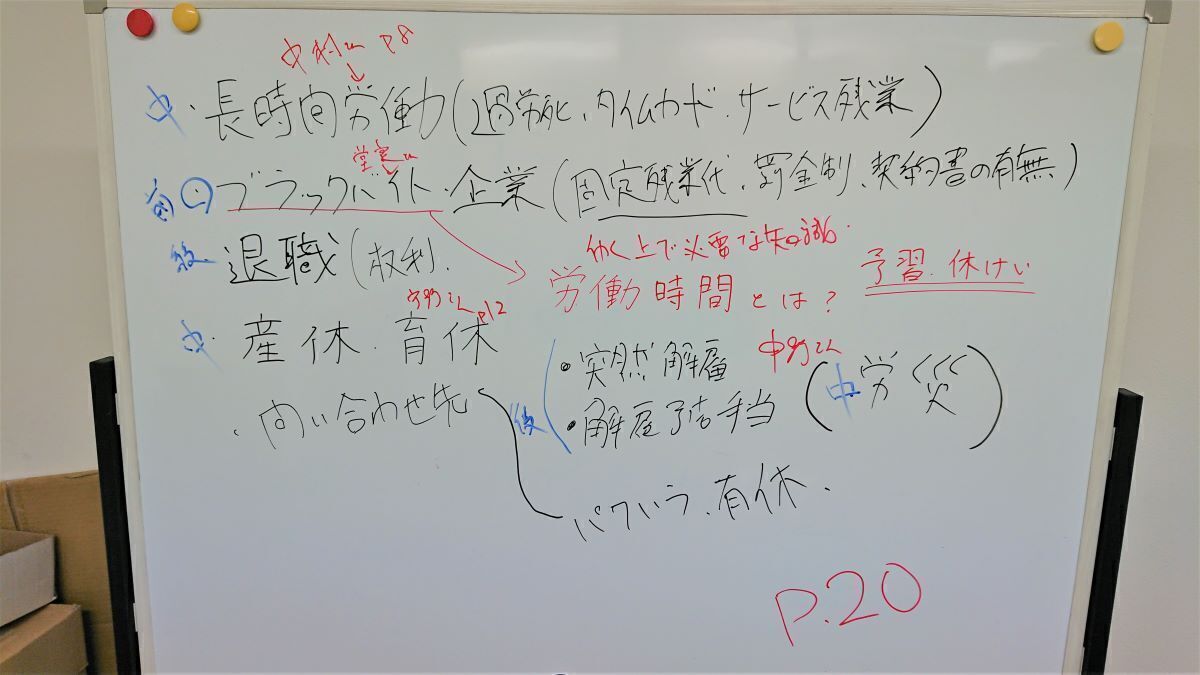 中村さん P8
中・長時間労働(過労死、タイムカード・サービス残業)
堂実さん
ブラックバイト・企業(固定残業代、罰金制、契約書の有無)
退職(权利.
働く上で必要な知識・
予習・休けい
労働時間とは?
P12
中・産休・育休
・突然解雇
・解雇予告手当
(中 労災)
・問い合わせ先
パワハラ、有休.
P.20